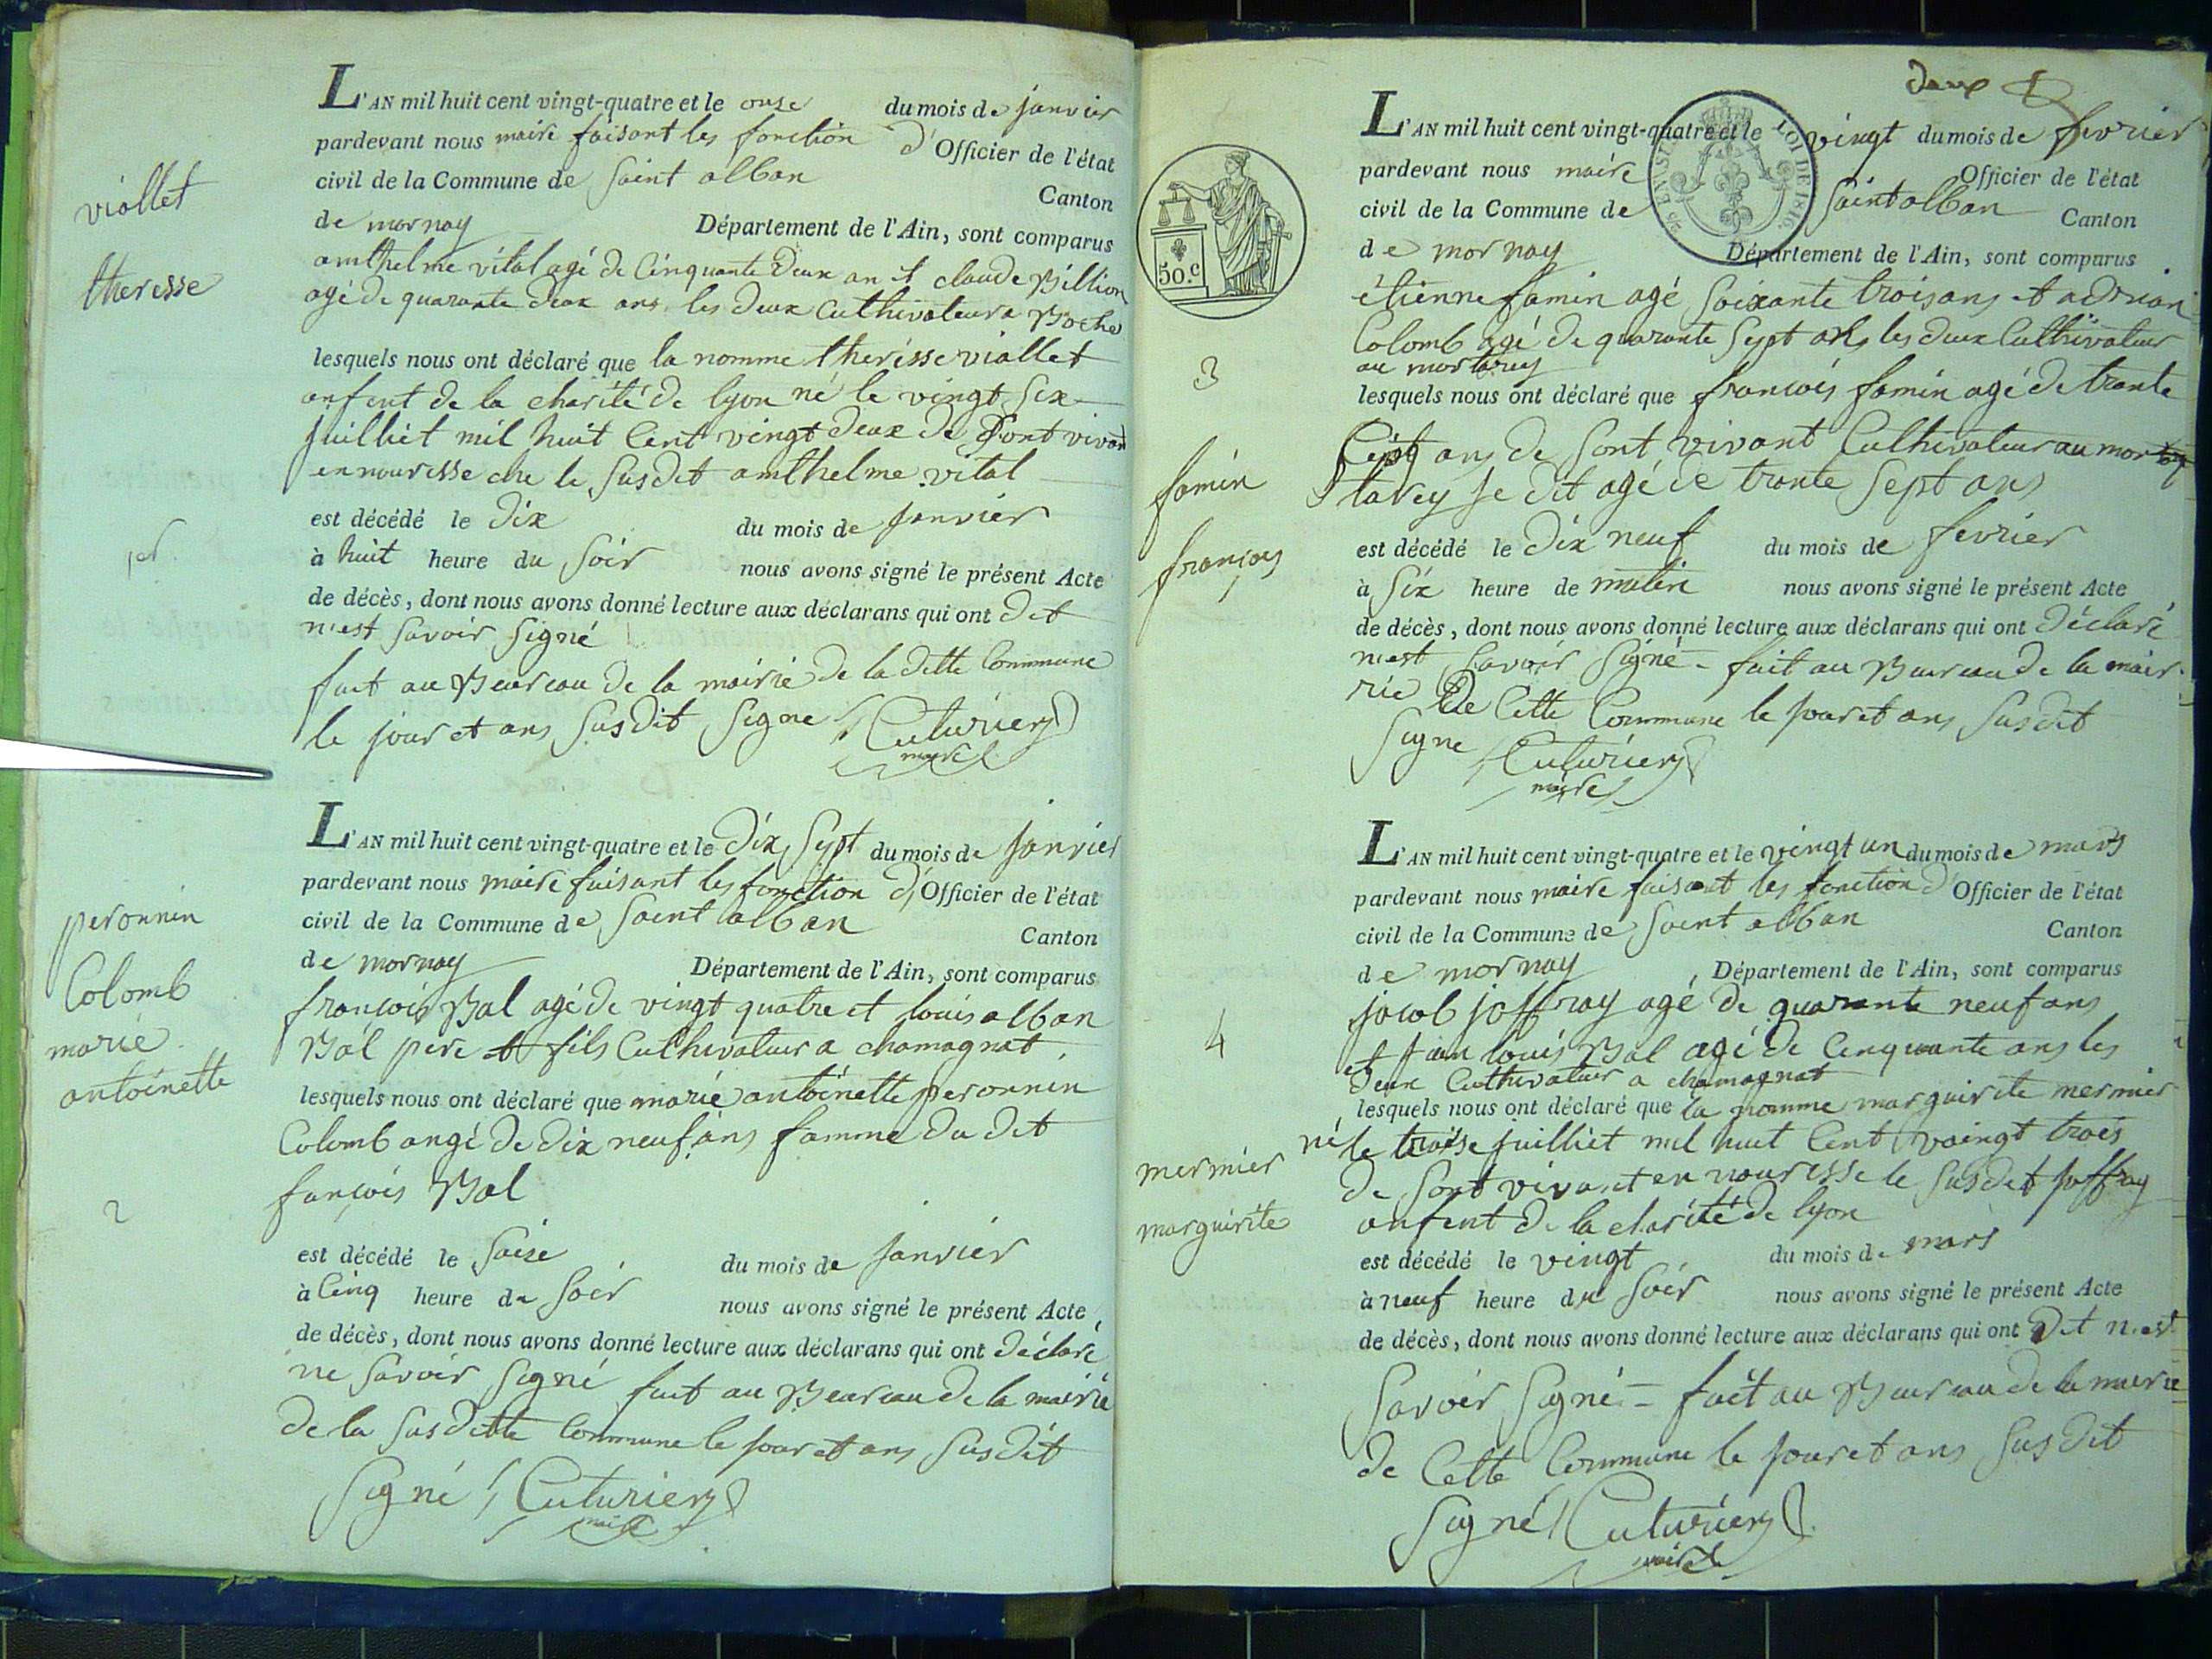 viollet
theresse
1er
L'AN mil huit cent vingt-quatre et le onse du mois de janvier
pardevant nous maire faisant les fonction d'Officier de l'état
civil de la Commune de Saint alban Canton
de mornay Département de l'Ain, sont comparus
amthelme vital agé de Cinquante deux an et claude Billion
agé de quarante deux ans les deux Culthivateur a Boche
lesquels nous ont déclaré que la nomme therésse viallet
enfent de la charité de lyon né le vingt Six
juilliet mil huit Cent vingt deux de Sont vivant
en nouresse che le Susdit amthelme vital
est décédé le dix du mois de janvier
à huit heure du Soir nous avons signé le présent Acte
de décès, dont nous avons donné lecture aux déclarans qui ont dit
n'est Savoir Signé
fait au Beureau de la mairie de la ditte Commune
le jour et ans Susdit Signe Cuturier
maire
peronnin
Colomb
marie
antoinette
2
L'AN mil huit cent vingt-quatre et le dix Sept du mois de janvier
pardevant nous maire faisant les fonction d'Officier de l'état
civil de la Commune de Saint alban Canton
de mornay Département de l'Ain, sont comparus
françois Bal agé de vingt quatre et louis alban
Bal pere et fils Culthivateur a chamagnat
lesquels nous ont déclaré que marie antoinette peronnin
Colomb angé de dix neuf ans famme du dit
françois Bal
est décédé le Saise du mois de janvier
à Cinq heure du Soir nous avons signé le présent Acte,
de décès, dont nous avons donné lecture aux déclarans qui ont déclaré
ne Savoir Signé fait au Beureau de la mairie
de la Susditte Commune le jour et ans Susdit
Signé Cuturier
maire
deux
50.c
LOI DE 1816
3
famin
françois
L'AN mil huit cent vingt-quatre et le vingt du mois de fevrier
pardevant nous maire Officier de l'état
civil de la Commune de Saint alban Canton
de mornay Département de l'Ain, sont comparus
étienne famin agé Soixante trois ans et adrian
Colomb agé de quarante Sept ans les deux Culthivateur
au mortarey
lesquels nous ont déclaré que françois famin agé de trante
Cept ans de Sont vivant Culthivateur au mor
tarey je dit agé de trante Sept ans
est décédé le dix neuf du mois de fevrier
à Six heure de matin nous avons signé le présent Acte
de décès, dont nous avons donné lecture aux déclarans qui ont déclaré
n'est Savoir Signé - fait au Bureau de la mair-
rie de Cette Commune le jour et ans Susdit
Signe Cuturier
maire
4
mermier
marguirite
L'AN mil huit cent vingt-quatre et le vingt un du mois de mars
pardevant nous maire faisant les fonction d'Officier de l'état
civil de la Commune de Saint alban Canton
de mornay Département de l'Ain, sont comparus
jacob joffray agé de quarante neuf ans
et jean louis Bal agé de Cinquante ans les
deux Culthivateur a chamagnat
lesquels nous ont déclaré que la nomme marguirite mermier
né le traise juilliet mil huit Cent vaingt trois
de Sont vivant en nouresse le Susdit joffray
anfent de la charité de lyon
est décédé le vingt du mois de mars
à neuf heure du Soir nous avons signé le présent Acte
de décès, dont nous avons donné lecture aux déclarans qui ont dit n'est
Savoir Signé - fait au Bureau de la mairie
de Cette Commune le jour et ans Susdit
Signé Cuturier
maire